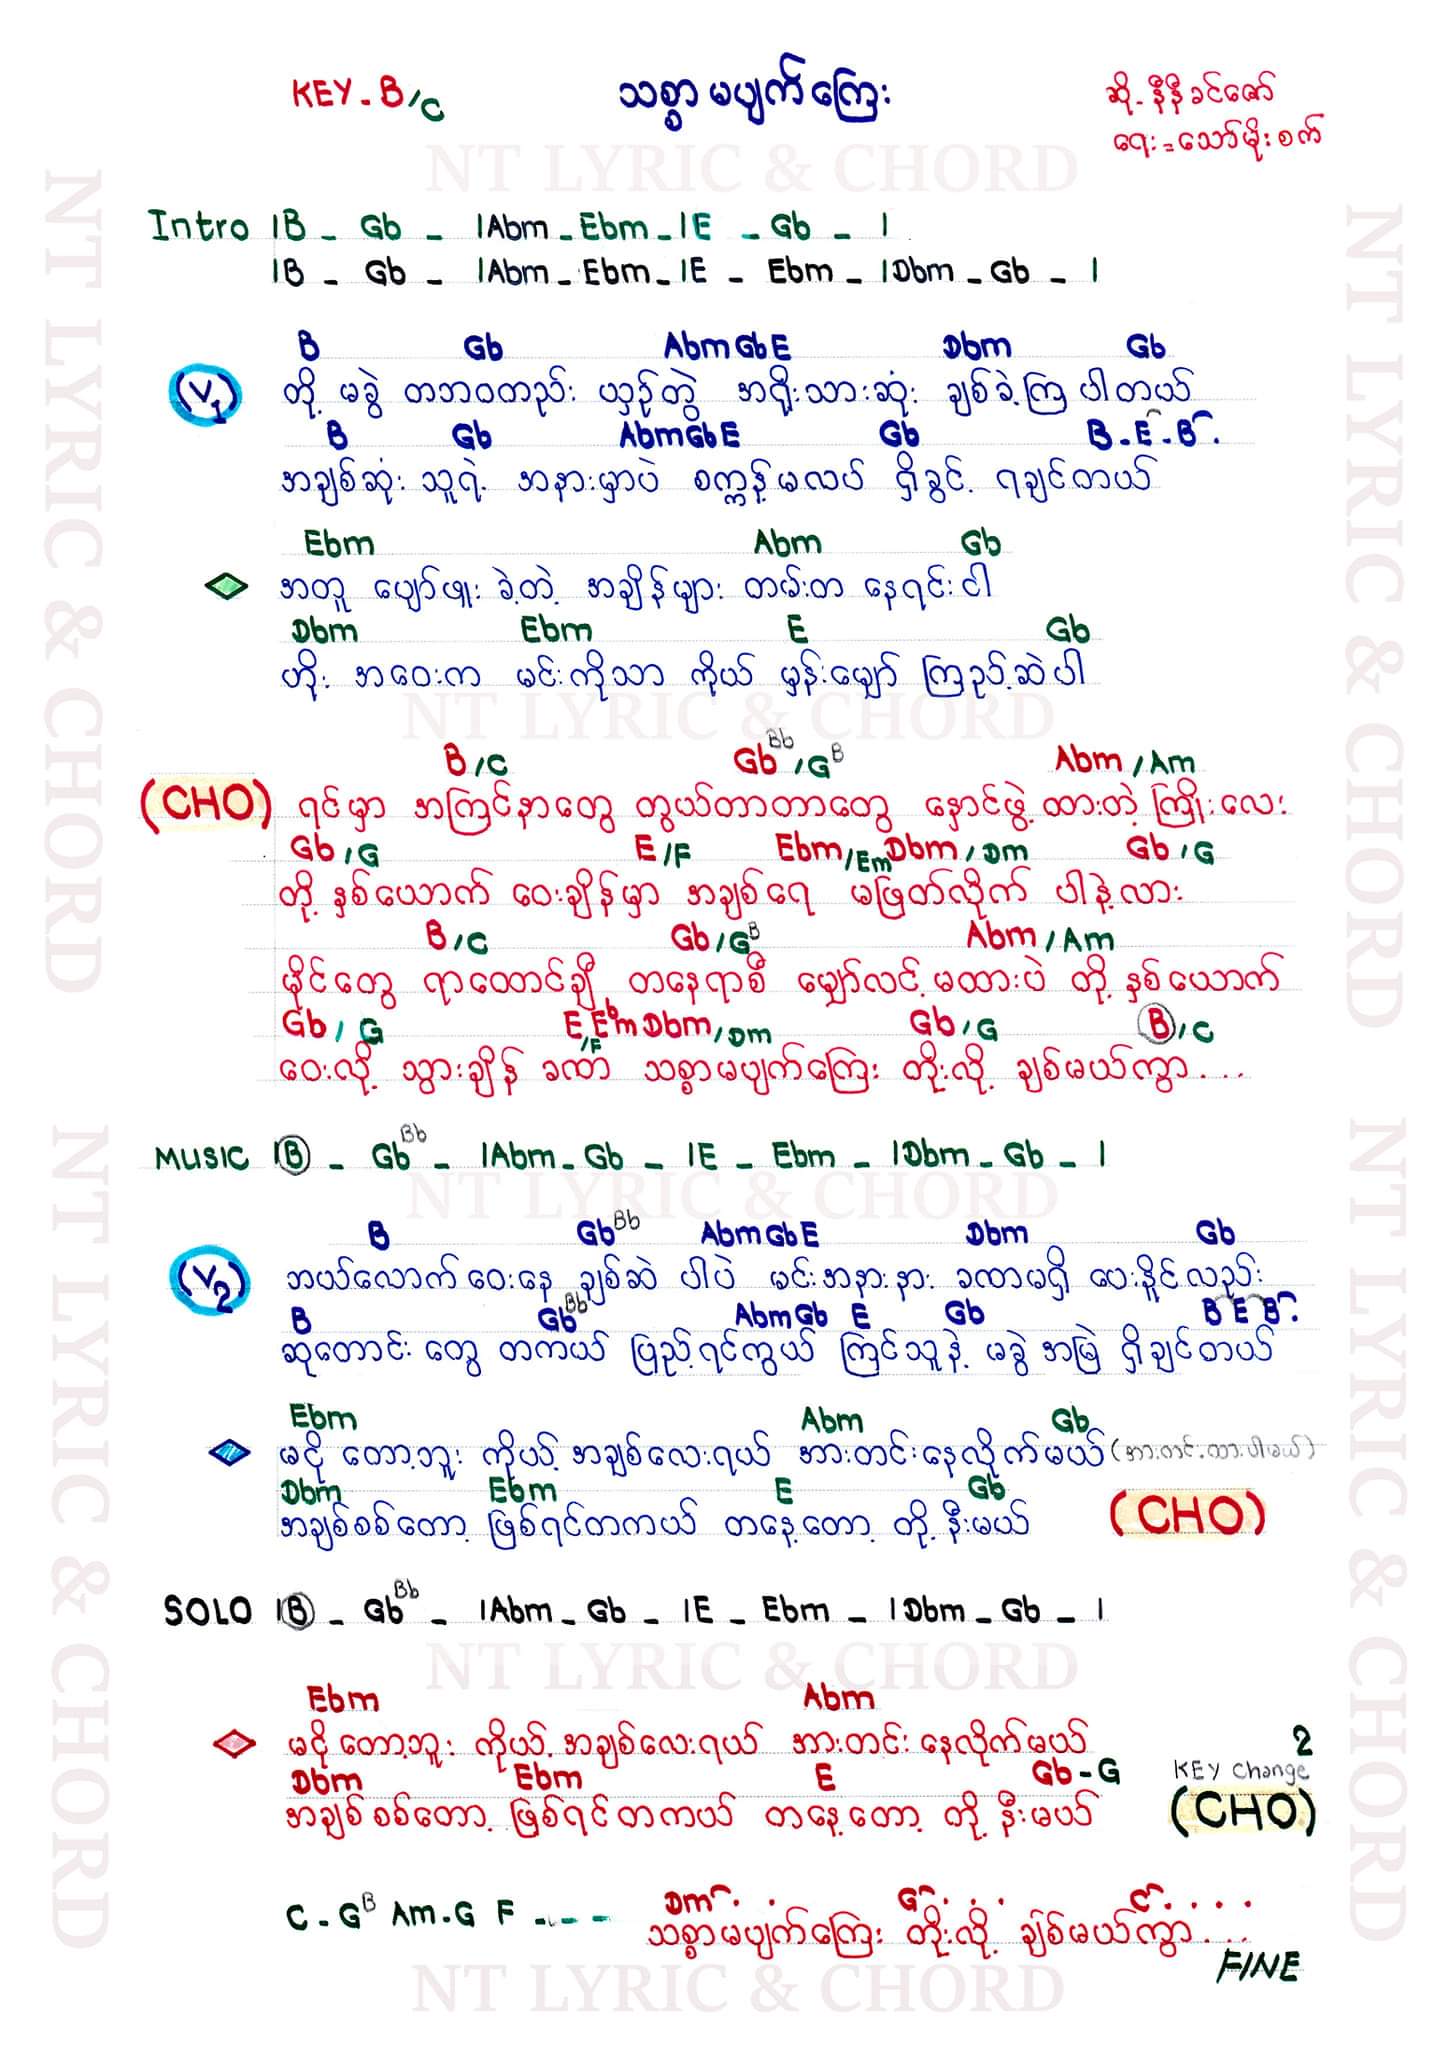 KEY - B/C
သစ္စာ မပျက်ကြေး
ဆို - နီနီခင်ဇော်
ရေး = သော်မိုးစက်
NT LYRIC & CHORD
Intro |B - Gb - |Abm - Ebm - |E - Gb - |
|B - Gb - |Abm - Ebm - |E - Ebm - |Dbm - Gb - |
B Gb Abm Gb E Dbm Gb
(V1) တို့ မခွဲ တဘဝတည်း ယှဉ်တွဲ အရိုးသားဆုံး ချစ်ခဲ့ကြ ပါတယ်
B Gb Abm Gb E Gb B - E - B
အချစ်ဆုံး သူရဲ့ အနားမှာပဲ စက္ကန့်မလပ် ရှိခွင့် ရချင်တယ်
Ebm Abm Gb
အတူ ပျော်ဖူး ခဲ့တဲ့ အချိန်များ တမ်းတ နေရင်းငါ
Dbm Ebm E Gb
ဟိုး အဝေးက မင်းကိုသာ ကိုယ် မှန်းမျှော် ကြည့်ဆဲပါ
NT LYRIC & CHORD
B/C Gb Bb /G B Abm/Am
(CHO) ရင်မှာ အကြင်နာတွေ တွယ်တာတာတွေ နှောင်ဖွဲ့ ထားတဲ့ ကြိုးလေး
Gb/G E/F Ebm/Em Dbm/Dm Gb/G
တို့ နှစ်ယောက် ဝေးချိန်မှာ အချစ်ရေ မဖြတ်လိုက် ပါနဲ့လား
B/C Gb/G B Abm/Am
မိုင်တွေ ရာထောင်ချီ တနေရာစီ မျှော်လင့်မထားပဲ တို့ နှစ်ယောက်
Gb/G E/F Ebm Dbm/Dm Gb/G B/C
ဝေးလို့ သွားချိန် ခဏ သစ္စာမပျက်ကြေး တိုးလို့ ချစ်မယ်ကွာ....
MUSIC |B - Gb Bb - |Abm - Gb - |E - Ebm - |Dbm - Gb - |
NT LYRIC & CHORD
B Gb Bb Abm Gb E Dbm Gb
(V2) ဘယ်လောက်ဝေးနေ ချစ်ဆဲ ပါပဲ မင်းအနားနား ခဏမရှိ ပေးနိူင်လည်း
B Gb Bb Abm Gb E Gb B E B
ဆုတောင်း တွေ တကယ် ပြည့်ရင်ကွယ် ကြင်သူနဲ့ မခွဲ အမြဲ ရှိချင်တယ်
Ebm Abm Gb
မငို တော့ဘူး ကိုယ့် အချစ်လေးရယ် အားတင်းနေလိုက်မယ် (အားတင်းထားပါမယ်)
Dbm Ebm E Gb
အချစ်စစ်တော့ ဖြစ်ရင်တကယ် တနေ့တော့ တို့ နီးမယ် (CHO)
SOLO |B - Gb Bb - |Abm - Gb - |E - Ebm - |Dbm - Gb - |
NT LYRIC & CHORD
Ebm Abm
မငို တော့ဘူး ကိုယ့် အချစ်လေးရယ် အားတင်း နေလိုက်မယ်
Dbm Ebm E Gb - G
အချစ်စစ်တော့ ဖြစ်ရင်တကယ် တနေ့တော့ တို့ နီးမယ်
2
KEY Change
(CHO)
C - G B Am - G F - - - -
Dm G C
သစ္စာမပျက်ကြေး တိုးလို့ ချစ်မယ်ကွာ....
FINE
NT LYRIC & CHORD
NT LYRIC & CHORD
NT LYRIC & CHORD
NT LYRIC & CHORD
NT LYRIC & CHORD